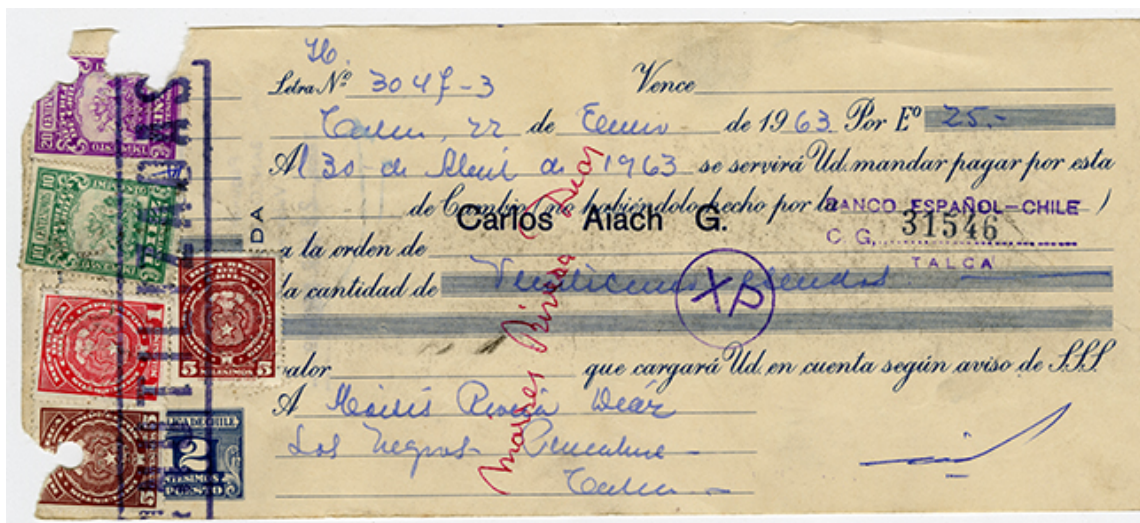 Letra Nº 3047-3 Vence
Talca, 22 de Enero de 1963. Por Eº 25.-
Al 30 de Abril de 1963 se servirá Ud. mandar pagar por esta
de Cambio (no habiéndolo hecho por la )
BANCO ESPAÑOL-CHILE
Carlos Aiach G.
C. G. 31546
TALCA
a la orden de
la cantidad de Veinticinco escudos
XP
valor que cargará Ud. en cuenta según aviso de S.S.S.
A Moisés Rivera Díaz
Los Negros - Pencahue -
Talca -
Moises Rivera Diaz
DA
20
IMPUESTO
10 IMPUESTO 10
CHILE
1
REPUBLICA DE CHILE
5 CENTESIMOS 5
5
2
CENTESIMOS
IMPUESTO